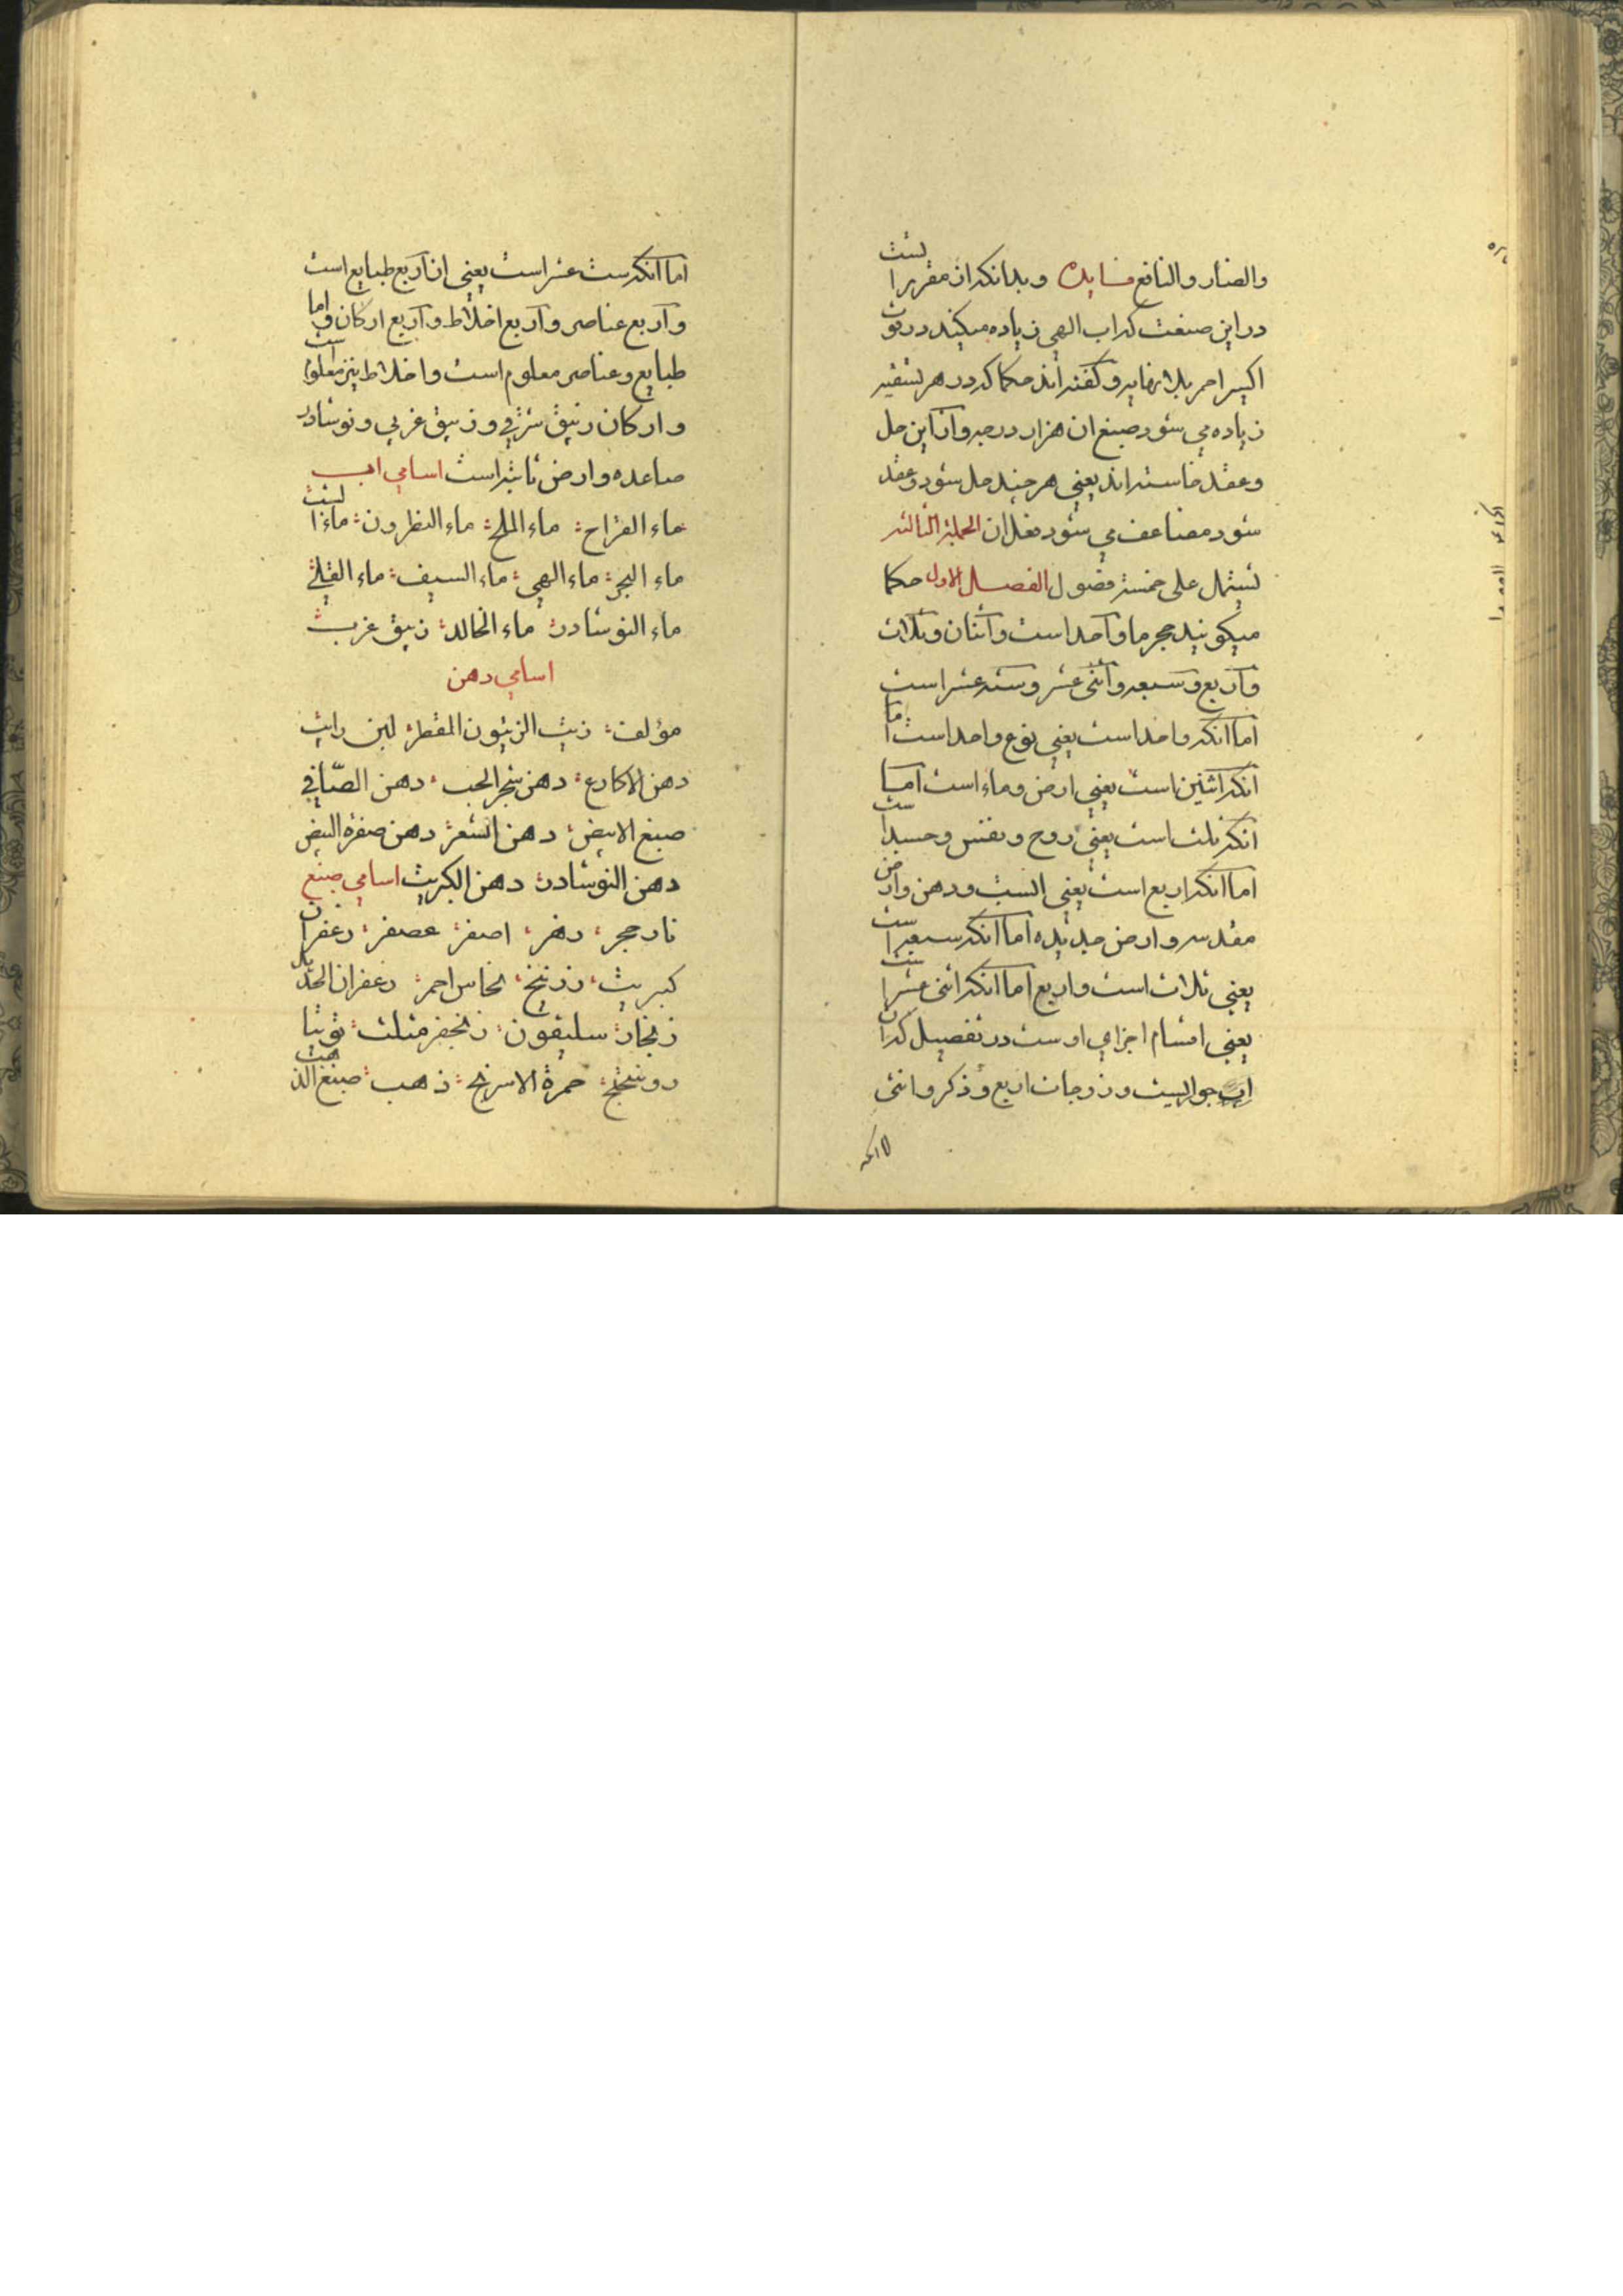 والضار والنافع فایده و بدانکه ان مقررا لیست
در این صنعت که اب الهی زیاده میکیند در قوت
اکسیر احمر بلا نهایه و کفته اند حکما که در هر تسقیه
زیاده می شود صبغ ان هزار درجه و از این حل
و عقد خاسته اند یعنی هر چند حل شود و عقد
شود مضاعف می شود فعل ان الجملة الثالثه
تشتمل علی خمسة فصول الفصل الاول حکما
میکویند حجر ما واحد است و اثنان و ثلاث
و اربع و سبعه و اثنی عشر و سته عشر است
اما انکه واحد است یعنی نوع واحد است اما
انکه اثنین است یعنی ارض و ماء است اما
انکه ثلث است یعنی روح و نفس و جسد است
اما انکه اربع است یعنی ابست و دهن وارض
مقدسه وارض جدیده اما انکه سبعه است
یعنی ثلاث است و اربع اما انکه اثنی عشر است
یعنی اقسام اجزای اوست در تفصیل که ان
و زوجات اربع و ذکر و انثی
اما انکه
اما انکه ست عشر است یعنی ان اربع طبایع است
و اربع عناصر و اربع اخلاط و اربع ارکان و اما
طبایع و عناصر معلوم است و اخلاط نیز معلوم است
و ارکان زیبق شرقی و زیبق غربی و نوشادر
صاعده و ارض ثانیه است اسامی اب
ماء القراح ماء الملح ماء النطرون ماء
ماء البحر ماء الهی ماء السیف ماء القلی
ماء النوشادر ماء الخالد زیبق غرب
اسامی دهن
مؤلف زیت الزیتون المقطر لبن رایب
دهن الاکارع دهن شجر الحب دهن الصافی
صبغ الابیض دهن الشعر دهن صفرة البیض
دهن النوشادر دهن الکبریت اسامی صبغ
نار حجر دهر اصفر عصفر زعفران
کبریت زرنیخ نحاس احمر زعفران الحدید
زنجار سلیقون زنجفر مثلث توتیا
روسختج حمرة الاسرنج ذهب صبغ الذهب